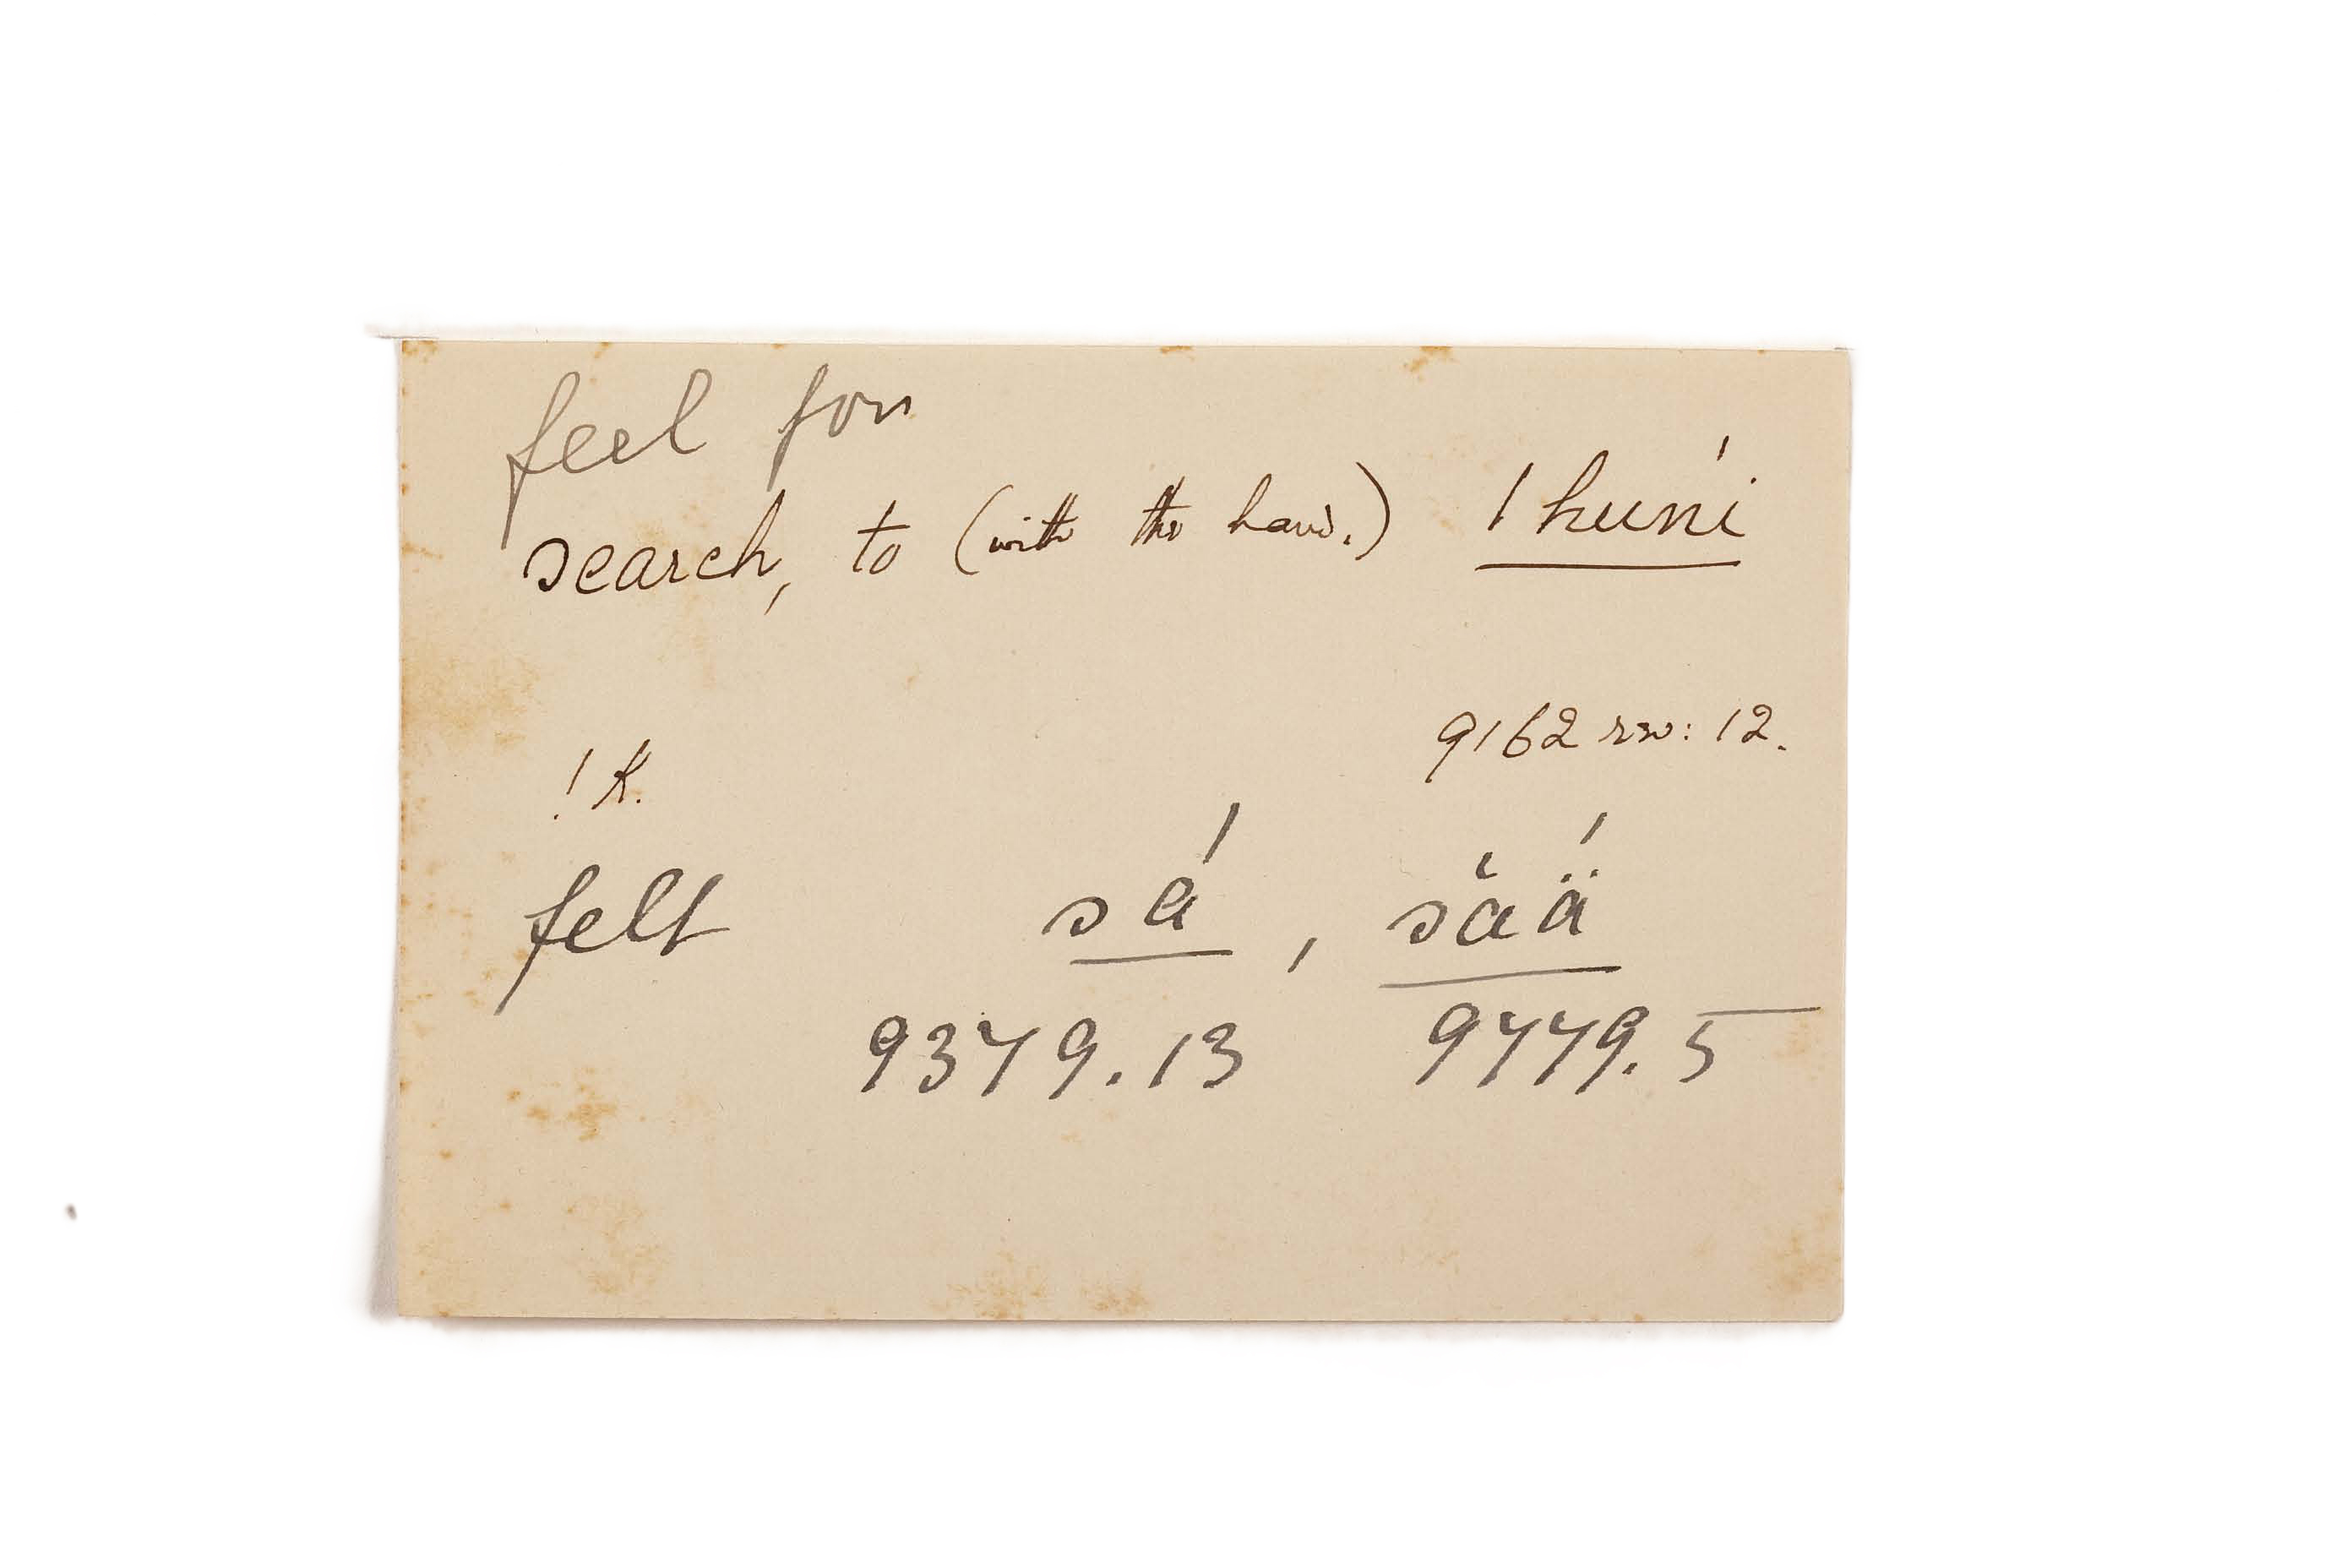 feel for
search, to (with the hand.) ǀhuńi
9162 rev: 12.
! K.
felt sá, să ä́
9379.13 9479.5